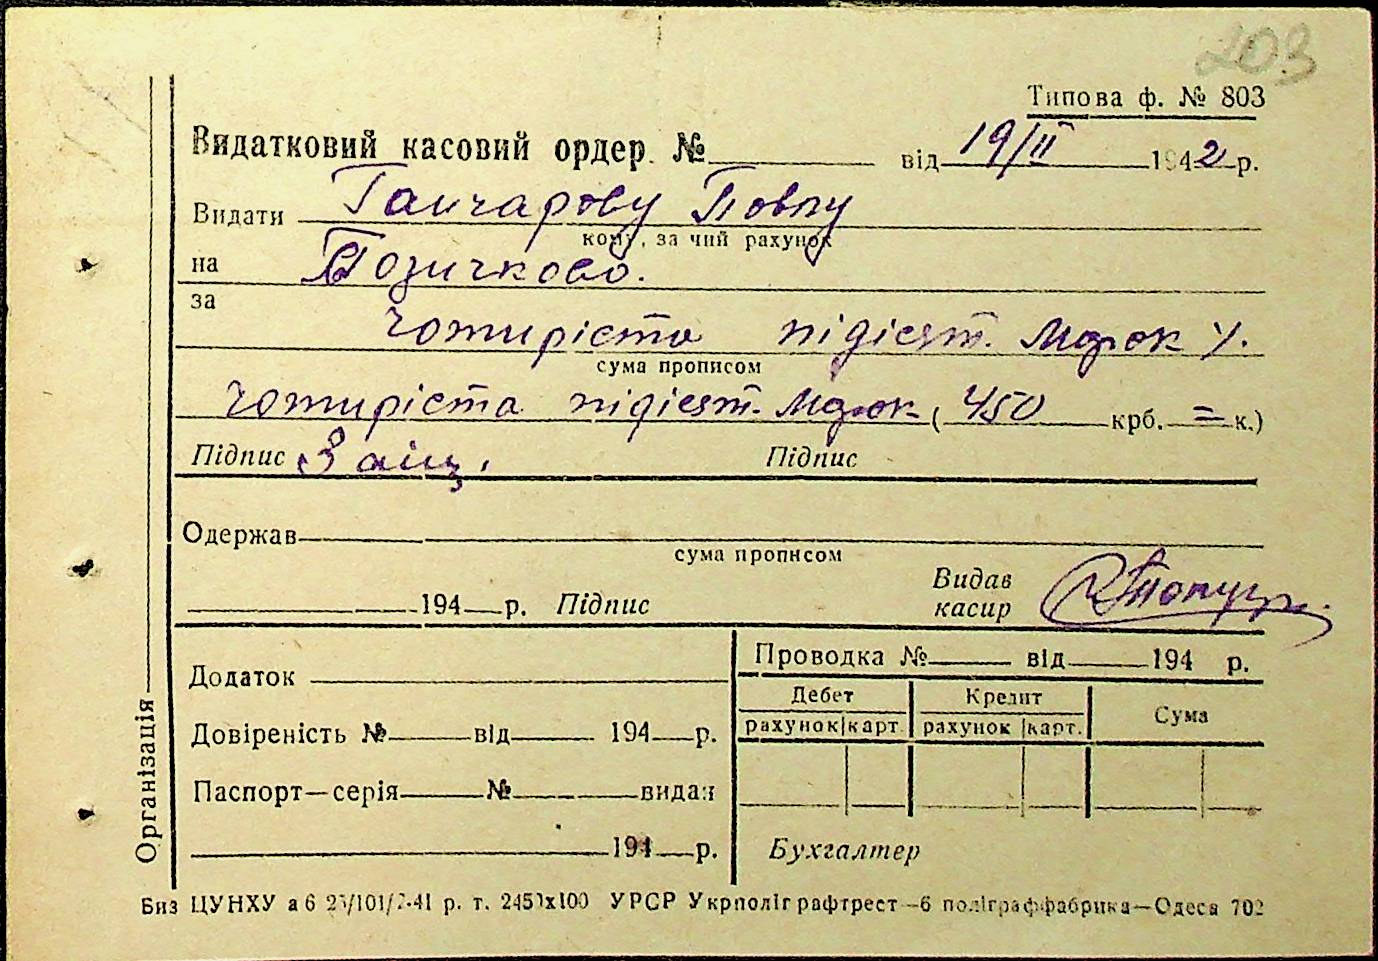 203
Типова ф. № 803
Видатковий касовий ордер № від 19/II 1942 р.
Видати Ганчарову Повлу
кому, за чий рахунок
на Позичково.
за
чотиріста підієят. Марок
сума прописом
чотиріста підієят. Марок (450 крб. = к.)
Підпис Заіщ. Підпис
Одержав
сума прописом
194 р. Підпис Видав касир
Додаток
Проводка № від 194 р.
Дебет Кредит Сума
рахунок карт. рахунок карт.
Довіреність № від 194 р.
Паспорт—серія № видан
194 р. Бухгалтер
Організація
Биз ЦУНХУ а б 41 р. т. УРСР Укрполіграфтрест—6 поліграффабрика—Одеса 702